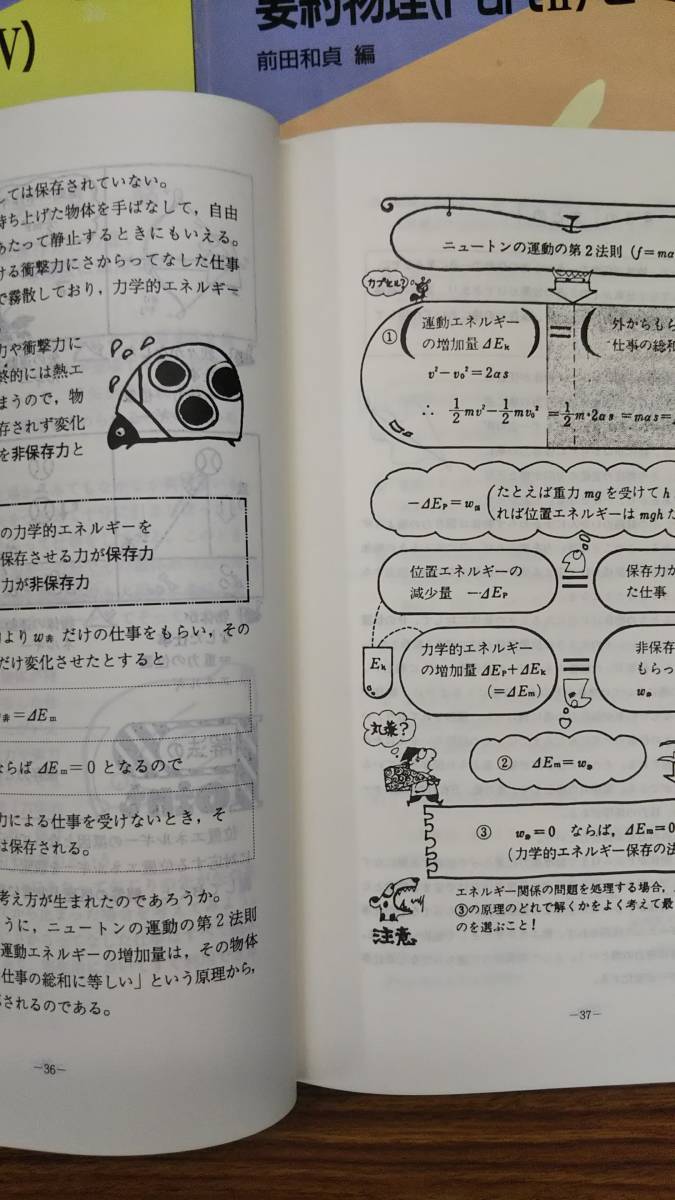 Ⅴ)
要約物理(PartⅡ)
前田和貞 編
しては保存されていない。
持ち上げた物体を手ばなして，自由
あたって静止するときにもいえる。
ける衝撃力にさからってなした仕事
で霧散しており，力学的エネルギー
力や衝撃力に
終的には熱エ
まうので，物
存されず変化
を非保存力と
の力学的エネルギーを
保存させる力が保存力
力が非保存力
力よりw非だけの仕事をもらい，その
だけ変化させたとすると
非＝ΔEm
ならばΔEm＝0となるので
力による仕事を受けないとき，そ
は保存される。
考え方が生まれたのであろうか。
うに，ニュートンの運動の第2法則
運動エネルギーの増加量は，その物体
仕事の総和に等しい」という原理から，
されるのである。
―36―
ニュートンの運動の第2法則（f＝mα
カプセル?
① (運動エネルギーの増加量ΔEk) ＝ (外からもら
仕事の総和
v²－v₀²＝2αs
∴ 1/2 mv²－1/2 mv₀² ＝1/2 m・2αs＝mαs＝
－ΔEP＝w保 (たとえば重力mgを受けてh
れば位置エネルギーはmghた
位置エネルギーの
減少量 －ΔEP
＝
保存力か
た仕事
Ek
力学的エネルギー
の増加量ΔEP＋ΔEk
（＝ΔEm）
＝
非保存
もらっ
w非
丸薬?
② ΔEm＝w非
③ w非＝0 ならば，ΔEm＝0
（力学的エネルギー保存の法
注意
エネルギー関係の問題を処理する場合，
③の原理のどれで解くかをよく考えて最
のを選ぶこと！
―37―